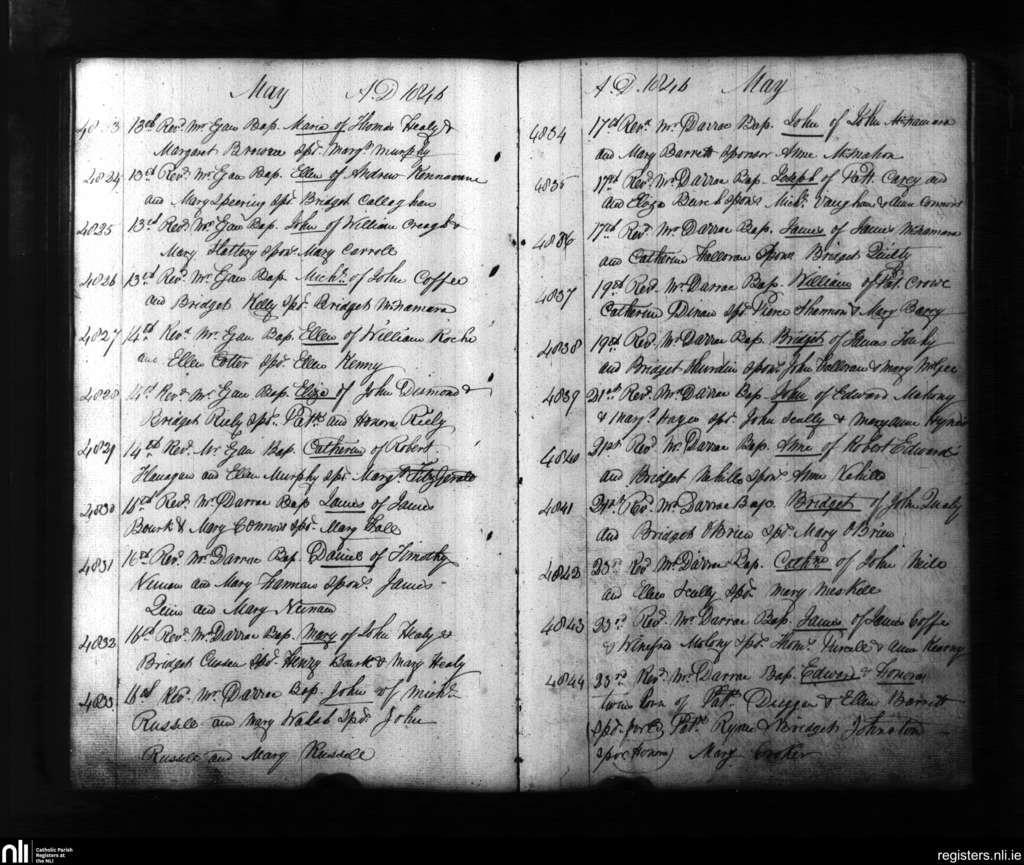 May A.D 1846
4823 13th Revd. Mr Egan Bap. Maria of Thomas Healy &
Margaret Browne Spr. Margt. Murphy
4824 13th Revd. Mr Egan Bap. Ellen of Andrew
and Mary Speering Spr. Bridget Callaghan
4825 13th Revd. Mr Egan Bap. John of William Creagh &
Mary Slattery Sponr. Mary Carroll
4826 13th Revd. Mr Egan Bap. Michl. of John Coffee
and Bridget Kelly Spr. Bridget McNamara
4827 14th Revd. Mr Egan Bap. Ellen of William Roche
and Ellen Cotter Spr. Ellen Kenny
4828 14th Revd. Mr Egan Bap. Eliza of John Desmond &
Bridget Riely Sprs. Patk. and Honora Riely
4829 14th Revd. Mr Egan Bap. Catherine of Robert
Flanagan and Ellen Murphy Spr. Margt. Fitzgerald
4830 16th Revd. Mr Darrae Bap. James of James
Bourk & Mary Connors Spr. Mary Hall
4831 16th Revd. Mr Darrae Bap. Daniel of Timothy
and Mary Sponr. James
Quin and Mary
4832 16th Revd. Mr Darrae Bap. Mary of John Healy &
Bridget Cusson Spr. Henry Bourk & Mary Healy
4833 16th Revd. Mr Darrae Bap. John of Michl.
Russell and Mary Walsh Sprs. John
Russell and Mary Russell
A.D. 1846 May
4834 17th Revd. Mr Darrae Bap. John of John McNamara
and Mary Barrett Sponsor Anne McMahon
4835 17th Revd. Mr Darrae Bap. Joseph of Patt Carey and
and Eliza Sponrs Michl. Vaughan & Ann Connors
4836 17th Revd. Mr Darrae Bap. James of James McNamara
and Catherine Halloran Sponr. Bridget Quilty
4837 19th Revd. Mr Darrae Bap. William of Pat Crowe
Catherine Dinan Spr. Pierce Shannon & Mary Barry
4838 19th Revd. Mr Darrae Bap. Bridget of James
and Bridget Sponr. John Halloran & Mary McGee
4839 21st Revd. Mr Darrae Bap. John of Edward Malony
& Margt. Hayes Spr. John Scully & Maryanne Hynes
4840 21st Revd. Mr Darrae Bap. Anne of Robert Edwards
and Bridget Kahille Sponr. Anne Kahille
4841 Revd. Mr Darrae Bap. Bridget of John Qualy
and Bridget O'Brien Spr. Mary O'Brien
4842 23rd Revd. Mr Darrae Bap. Cathne. of John
and Ellen Scully Spr. Mary Meskell
4843 23rd Revd. Mr Darrae Bap. James of James Coffee
& Winefred Malony Sprs. Thoms. Purcell & Anne Kearny
4844 23rd Revd. Mr Darrae Bap. Edward & Honora
twins born of Patk. Duggan & Ellen Barrett
Sprs. for E) Patk. Ryan & Bridget Johnston
Spr (Honora) Mary Croker
nli Catholic Parish
Registers at
the NLI
registers.nli.ie